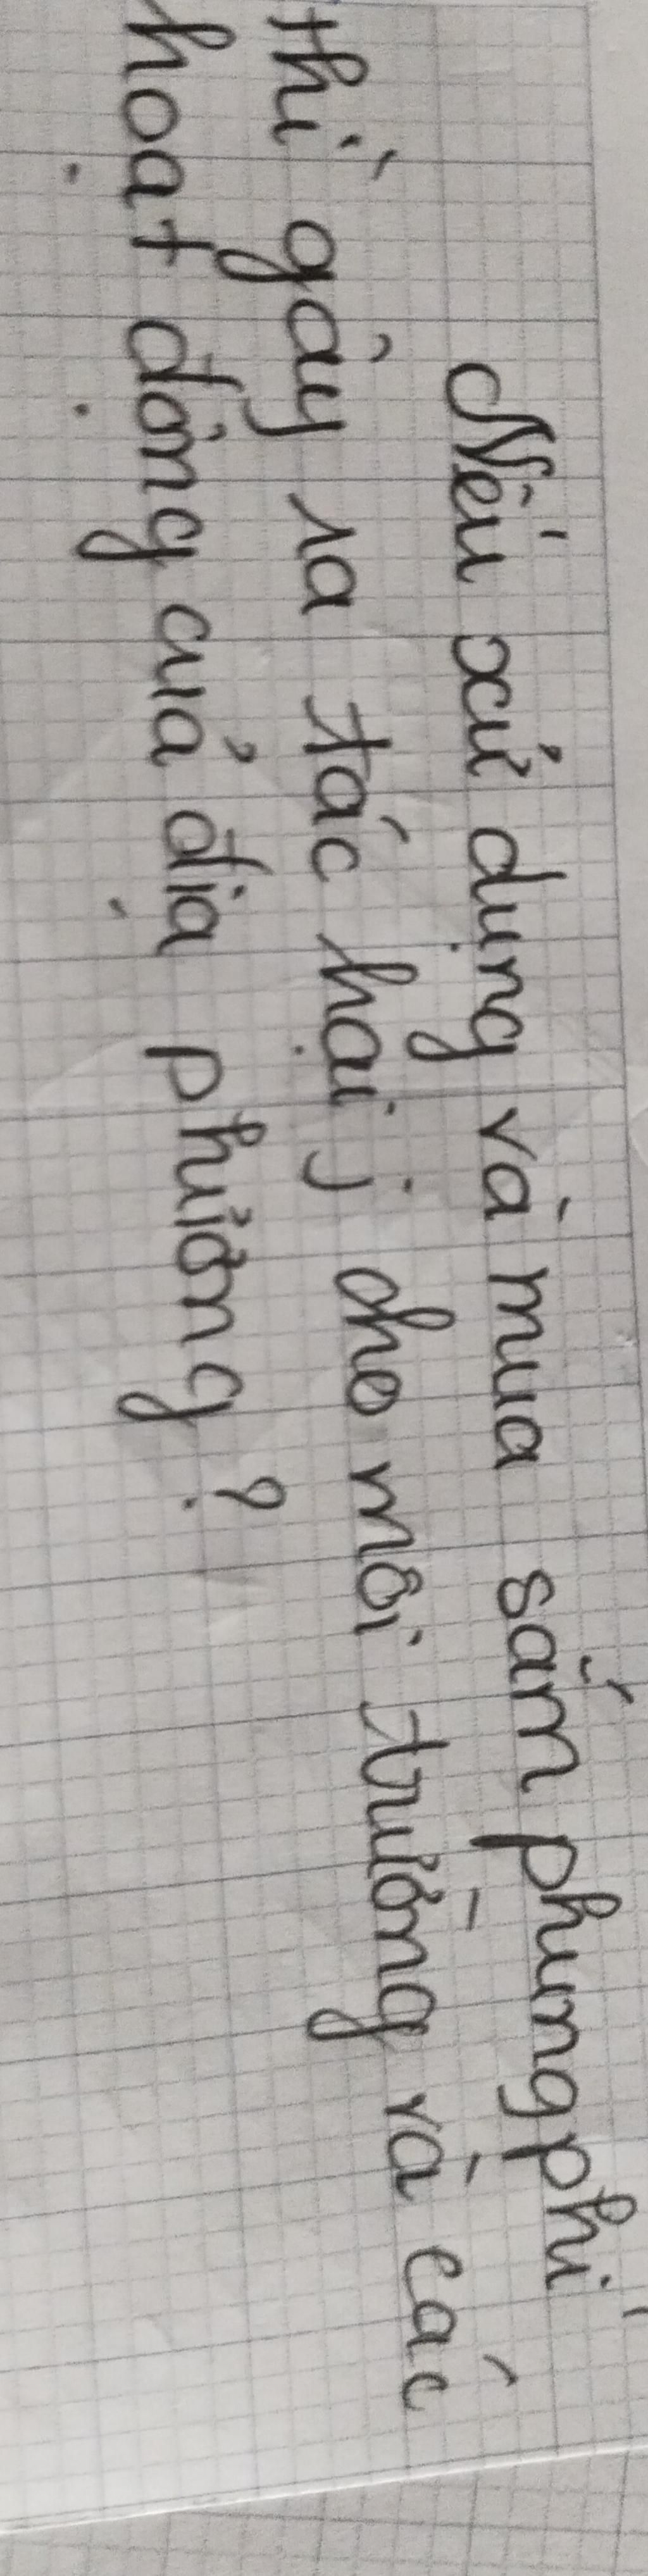 Nếu xử dụng và mua sắm phung phí
thì gây ra tác hại j cho môi trường và các
hoạt động của địa phương?